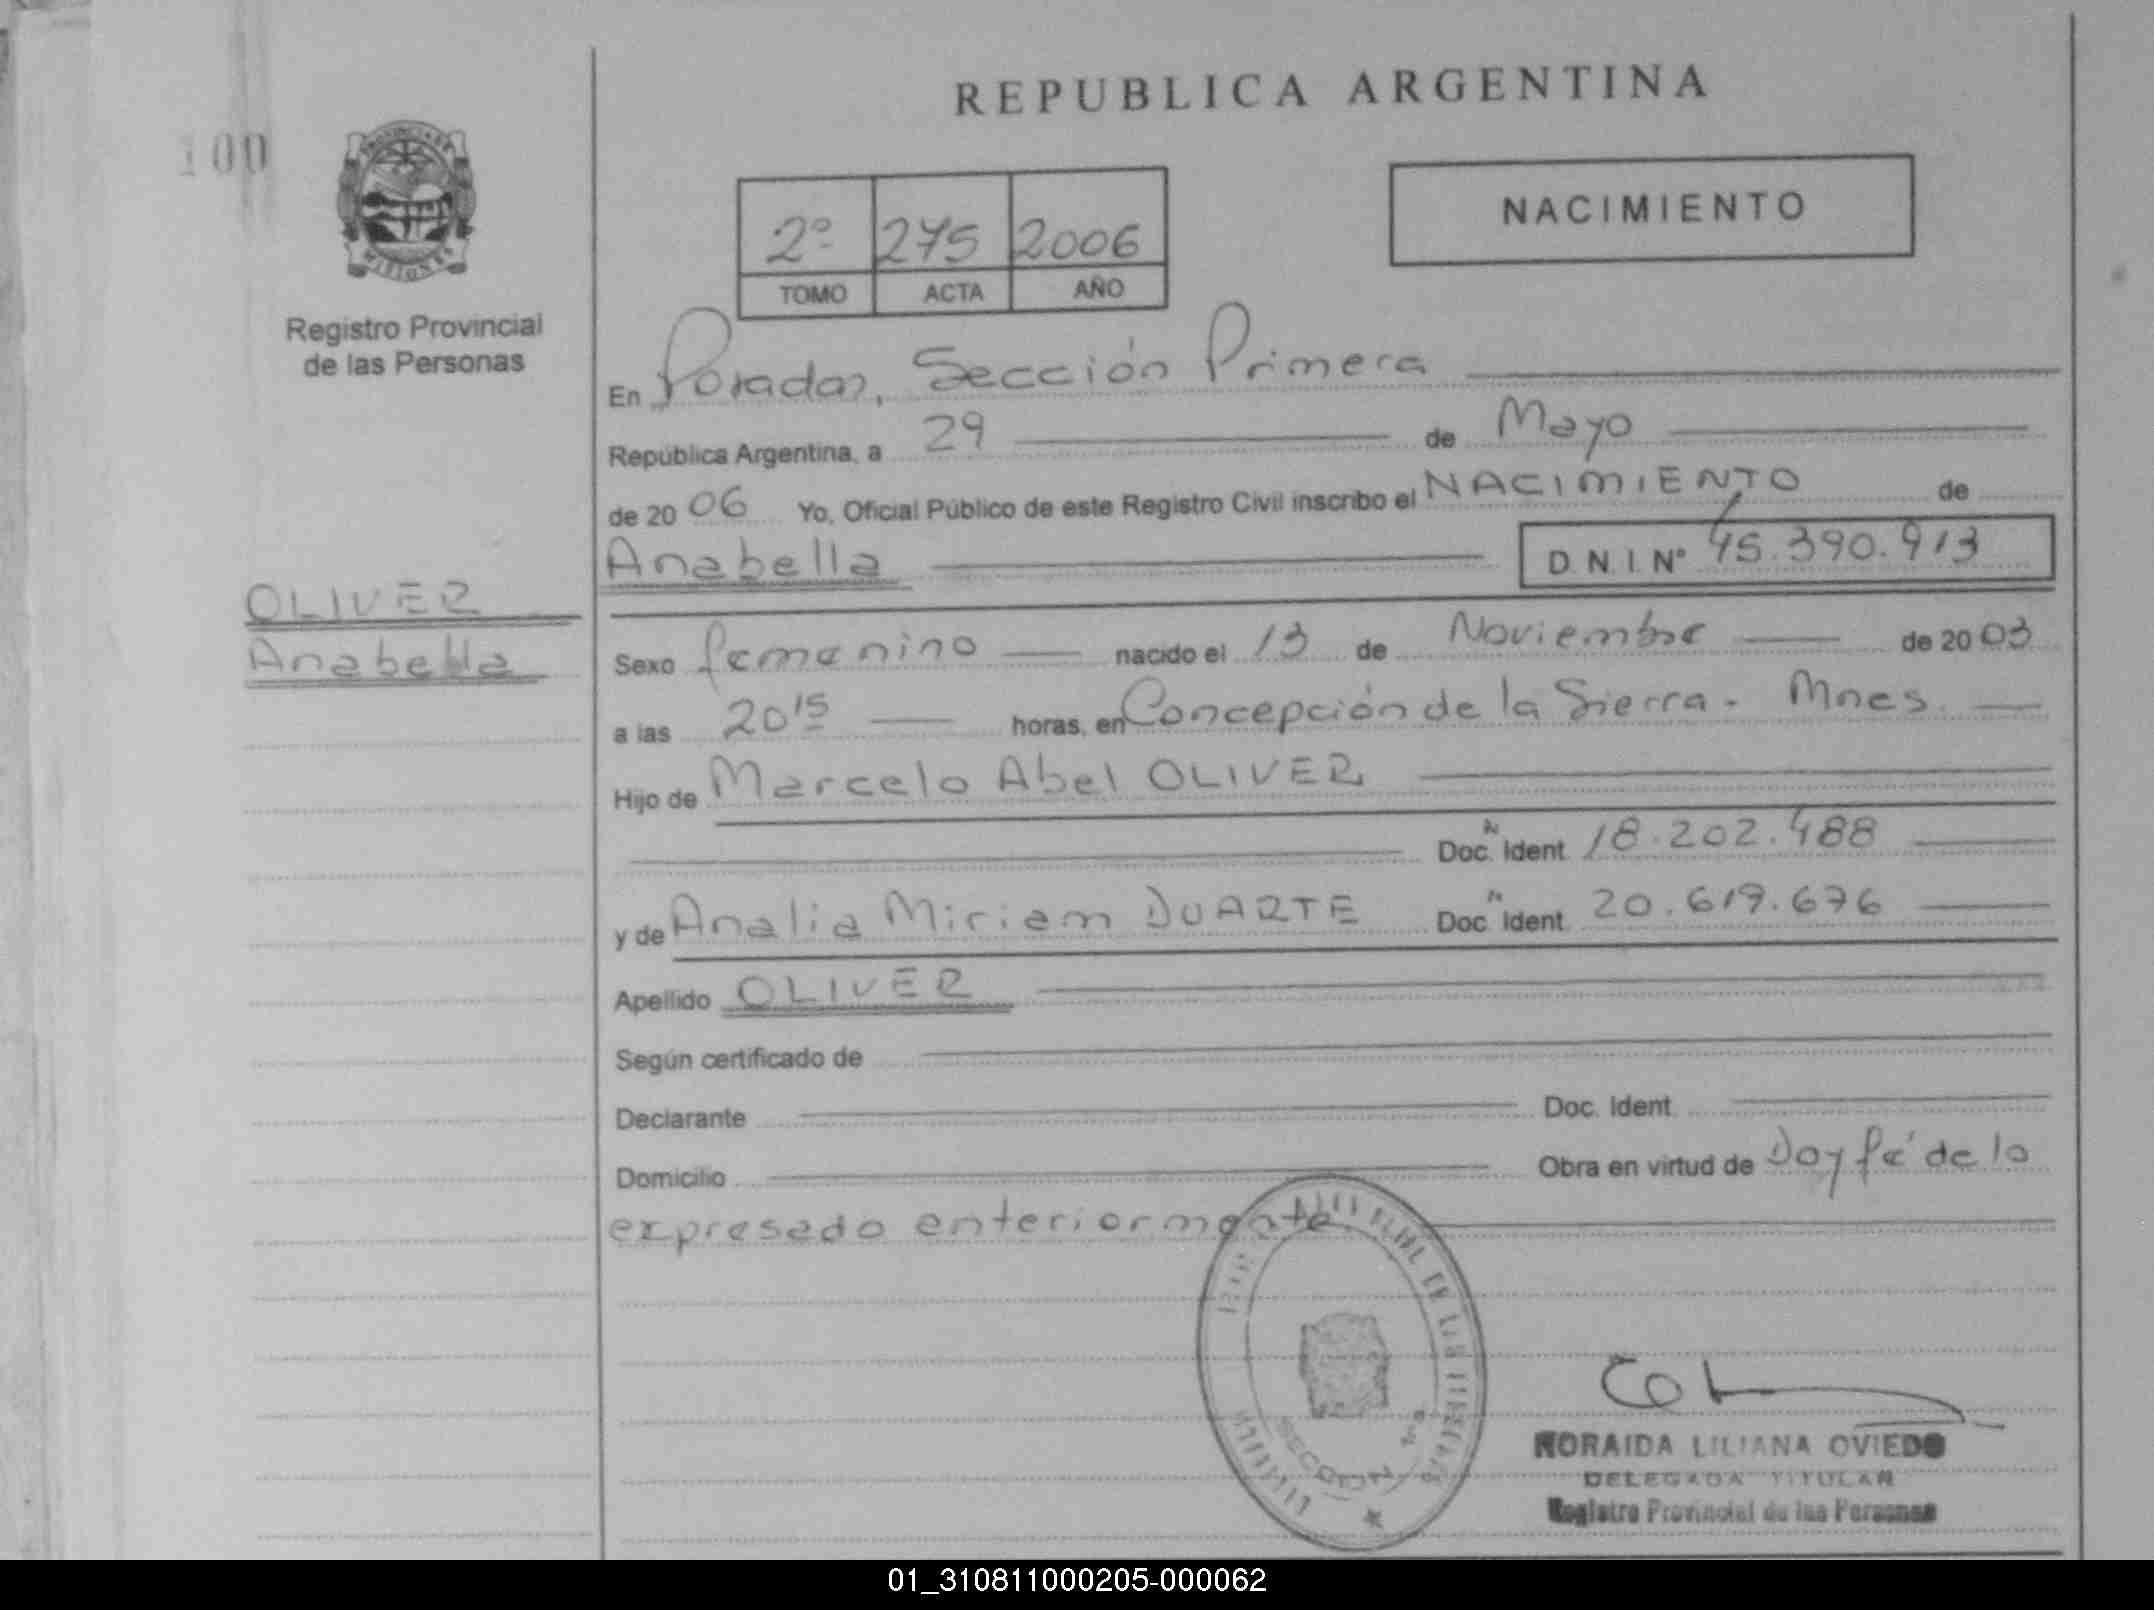 REPUBLICA ARGENTINA
100
NACIMIENTO
2º 275 2006
TOMO ACTA AÑO
Registro Provincial
de las Personas
En Posadas, Sección Primera
República Argentina, a 29 de Mayo
de 20 06 Yo, Oficial Público de este Registro Civil inscribo el NACIMIENTO de
Anabella D.N.I. Nº 45.390.913
OLIVER
Anabella
Sexo femenino nacido el 13 de Noviembre de 20 03
a las 20 15 horas, en Concepción de la Sierra - Mnes.
Hijo de Marcelo Abel OLIVER
Doc. Ident. 18.202.488
y de Analia Miriam DUARTE Doc. Ident. 20.619.676
Apellido OLIVER
Según certificado de
Declarante Doc. Ident.
Domicilio Obra en virtud de Doy fé de lo
expresado anteriormente
SECCION 1ra
NORAIDA LILIANA OVIEDO
DELEGADA TITULAR
Registro Provincial de las Personas
01_310811000205-000062